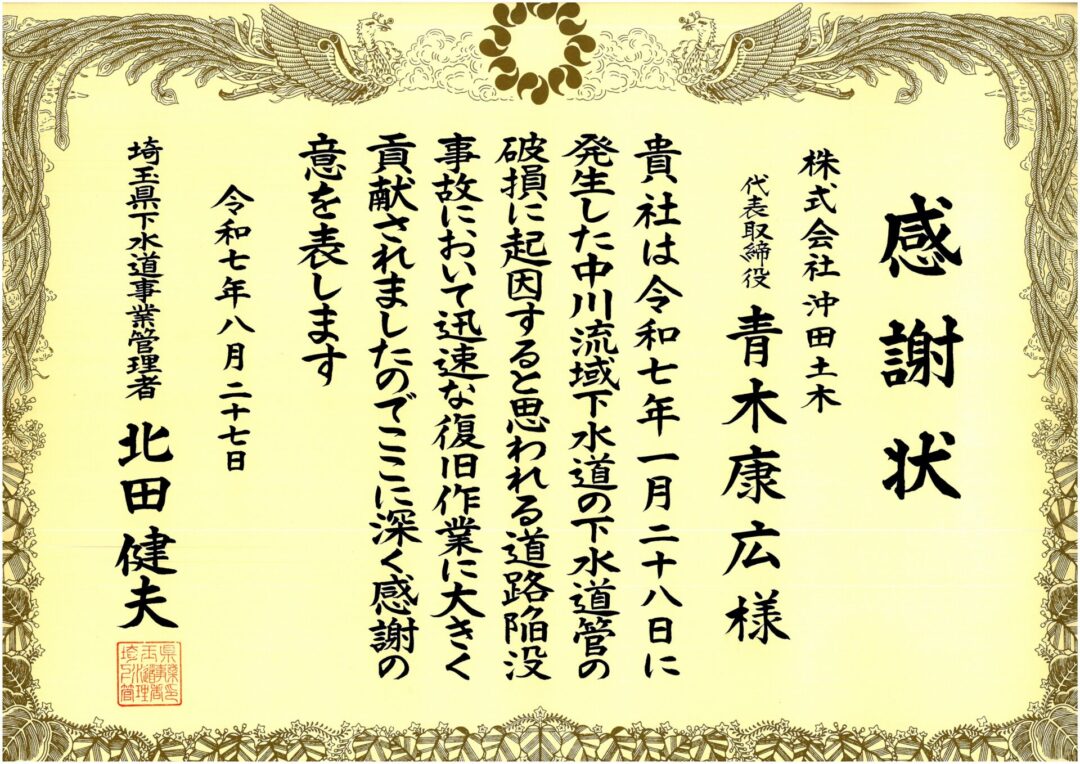 感謝状
株式会社 沖田土木
代表取締役 青木康広様
貴社は令和七年一月二十八日に
発生した中川流域下水道の下水道管の
破損に起因すると思われる道路陥没
事故において迅速な復旧作業に大きく
貢献されましたのでここに深く感謝の
意を表します
令和七年八月二十七日
埼玉県下水道事業管理者 北田健夫